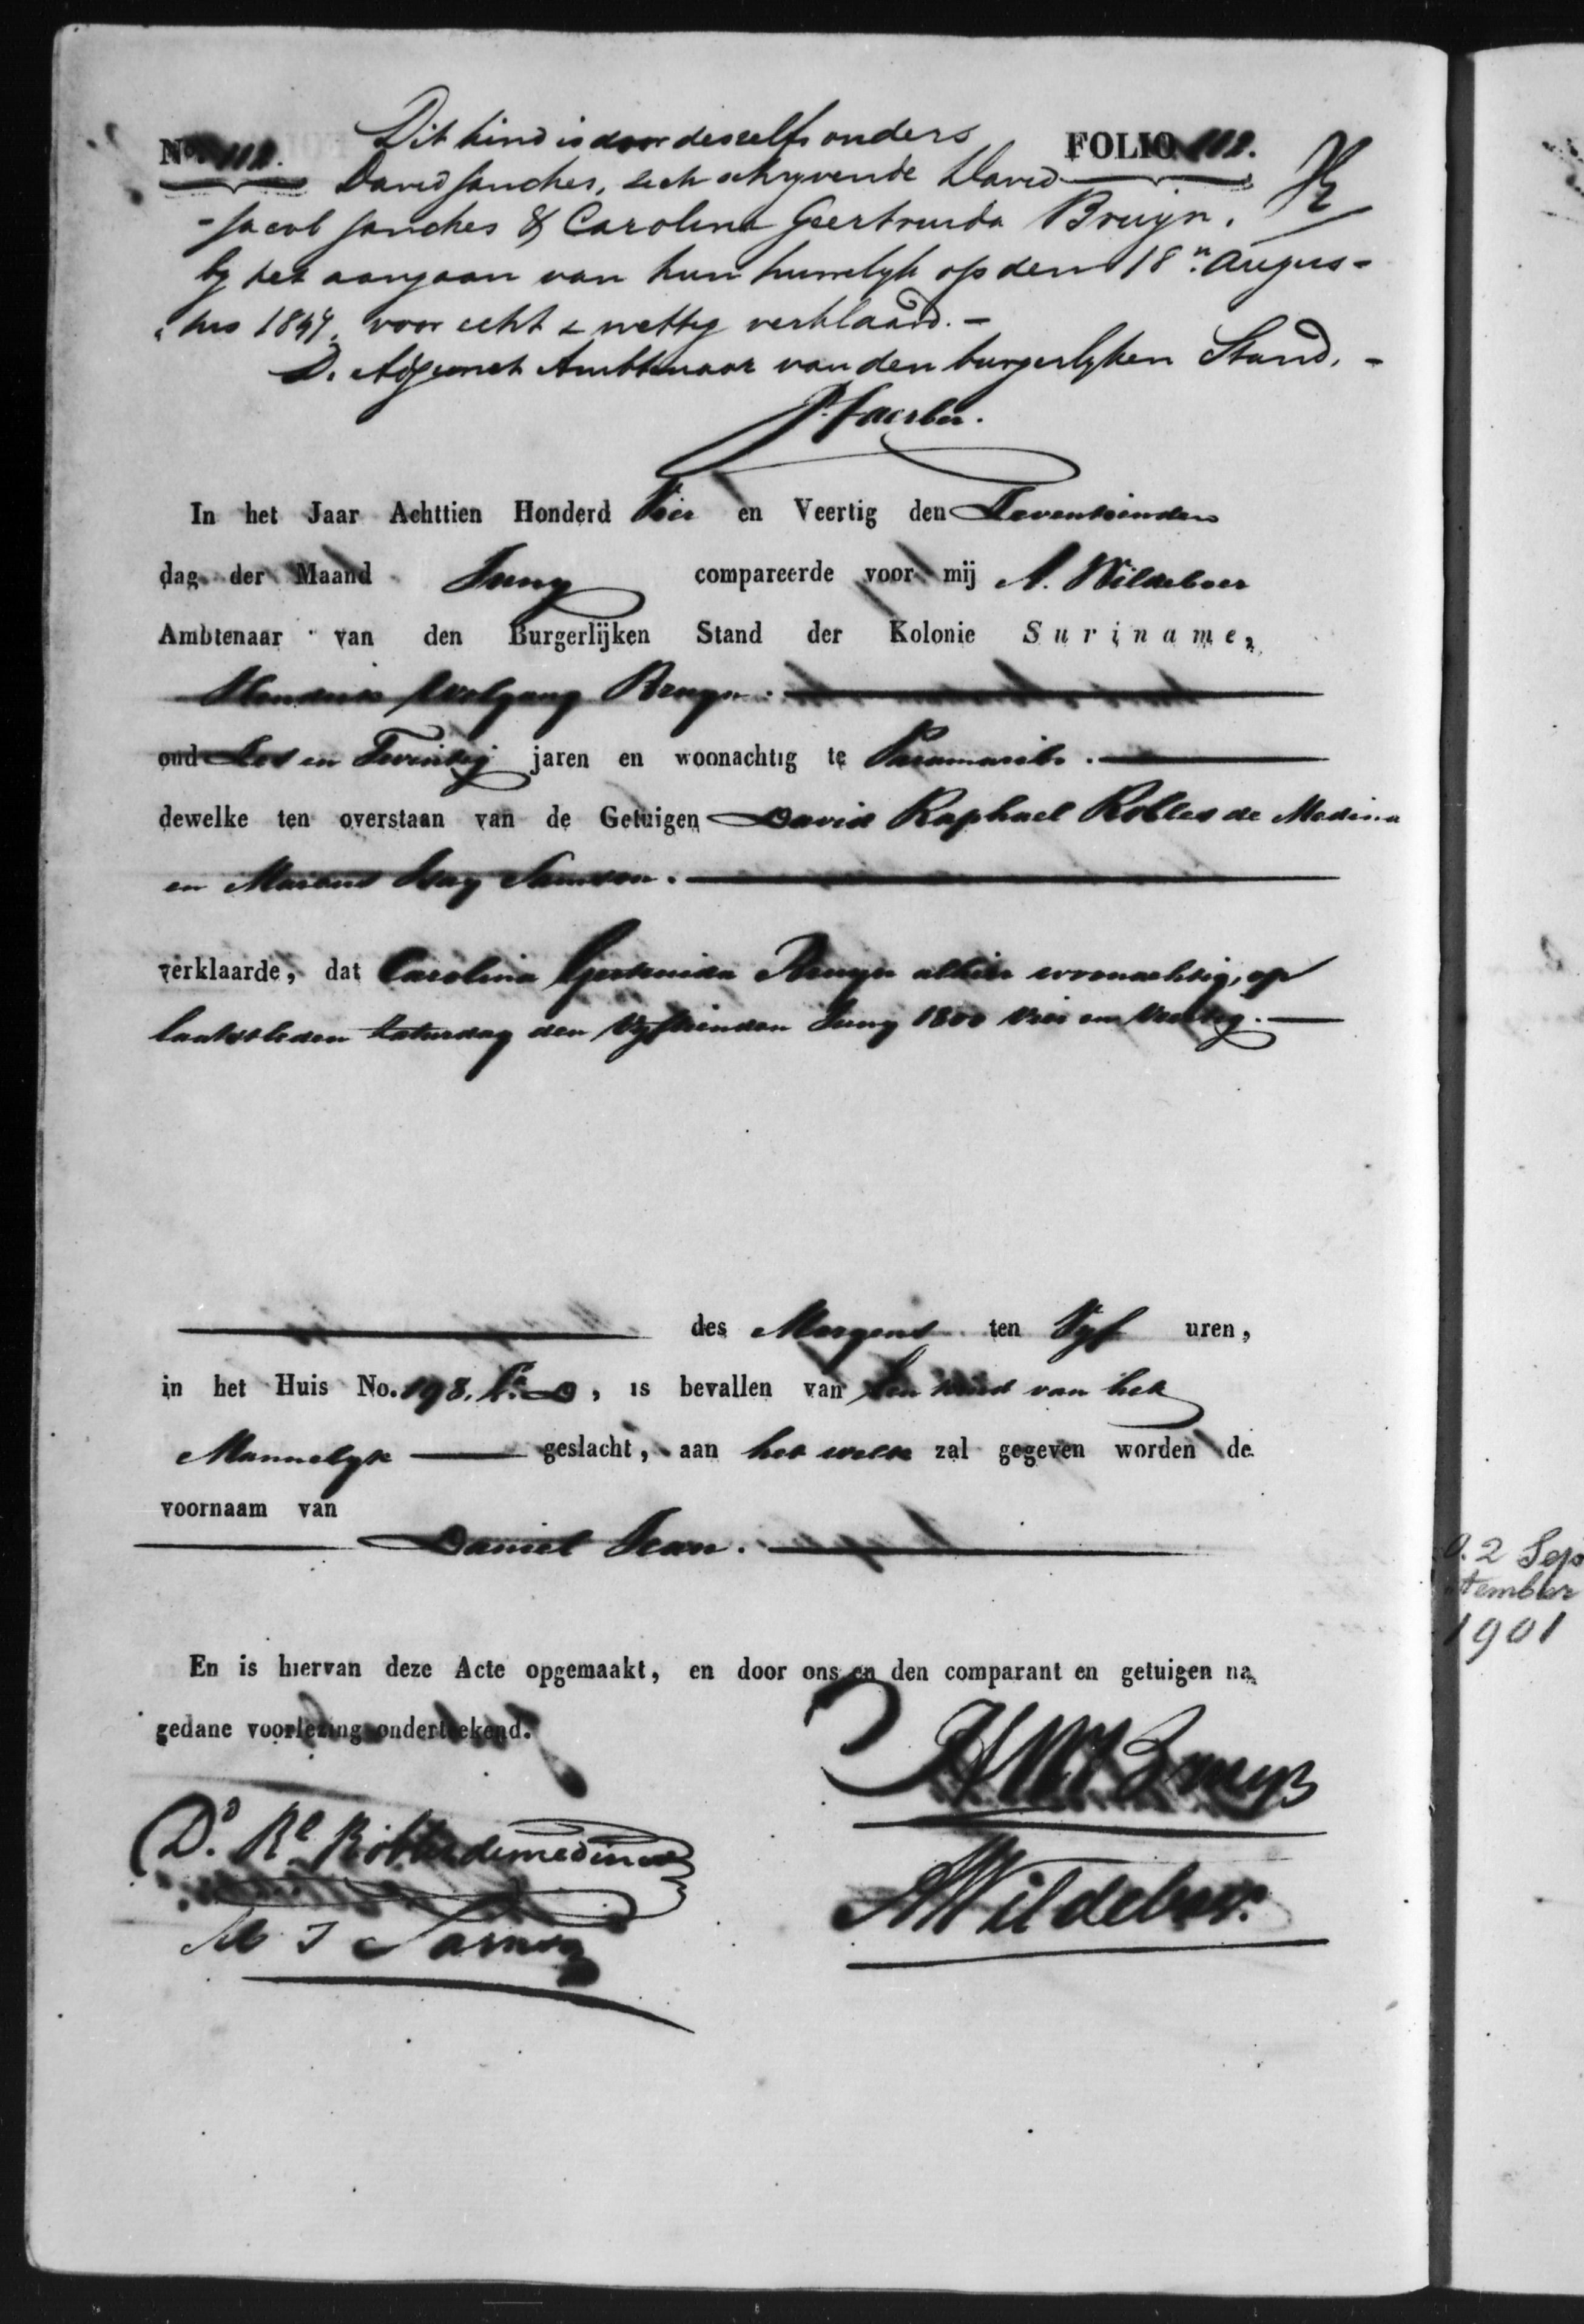 Dit kind is door deszelfs ouders
No. 112. FOLIO 112.
David Sanches, zich schryvende David
-Jacob Sanches & Carolina Geertruida Bruijn.
by het aangaan van hun huwelyk op den 18n. Augus-
tus 1847, voor echt & wettig verklaard. -
D. Adjunct Ambtenaar van den burgerlyken Stand. -
In het Jaar Achttien Honderd Vier en Veertig den Zeventienden
dag der Maand Juny compareerde voor mij A. Wildeboer
Ambtenaar van den Burgerlijken Stand der Kolonie Suriname,
Hendrik Wolfgang Bruyn.
oud Zes en Twintig jaren en woonachtig te Paramaribo.
dewelke ten overstaan van de Getuigen David Raphael Robles de Medina
en Marcus Isay Samson.
verklaarde, dat Carolina Geertruida Bruyn alhier woonachtig, op
laatstleden Saturdag den Vyftienden Juny 1800 Vier en Veertig.
des Morgens ten Vyf uren,
in het Huis No. 198. La. D, is bevallen van Een kind van het
Mannelyk geslacht, aan het welk zal gegeven worden de
voornaam van
Daniel Jean.
En is hiervan deze Acte opgemaakt, en door ons en den comparant en getuigen na
gedane voorlezing onderteekend.
H W Bruyn
Dd. Rl. Robles de medina
A Wildeboer.
M I Samson
O. 2 Sep
tember
1901